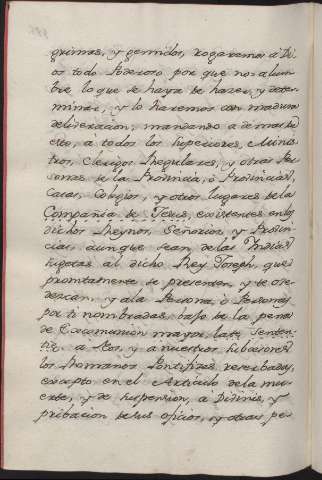 grimas, y gemidos, rogaremos à Di
os todo Poderoso por que nos alum
bre lo que se haya de hazer, y deter
minar, y lo haremos con madura
deliberacion, mandando a demas de
esto, a todos los Superiores, Minis
tros, Clerigos Regulares, y otras Per
sonas de la Provincia, ò Provincias,
Casas, Colegios, y otros lugares de la
Compañia de Jesus, existentes en los
dichos Reynos, Señorios y Provin
cias, aunque sean de las Indias
sugetas al dicho Rey Joseph, que
promtamente se presenten, y te obe
dezcan, y a la Persona, ò Personas
por ti nombradas, bajo de la pena
de Excomunion mayor late Senten
tie, a Nos, y a nuestros Subcesores
los Romanos Pontifices reserbadas,
excepto en el Articulo de la mu
erte, y de suspension, a Divinis, y
pribacion de sus oficios, y otras pe